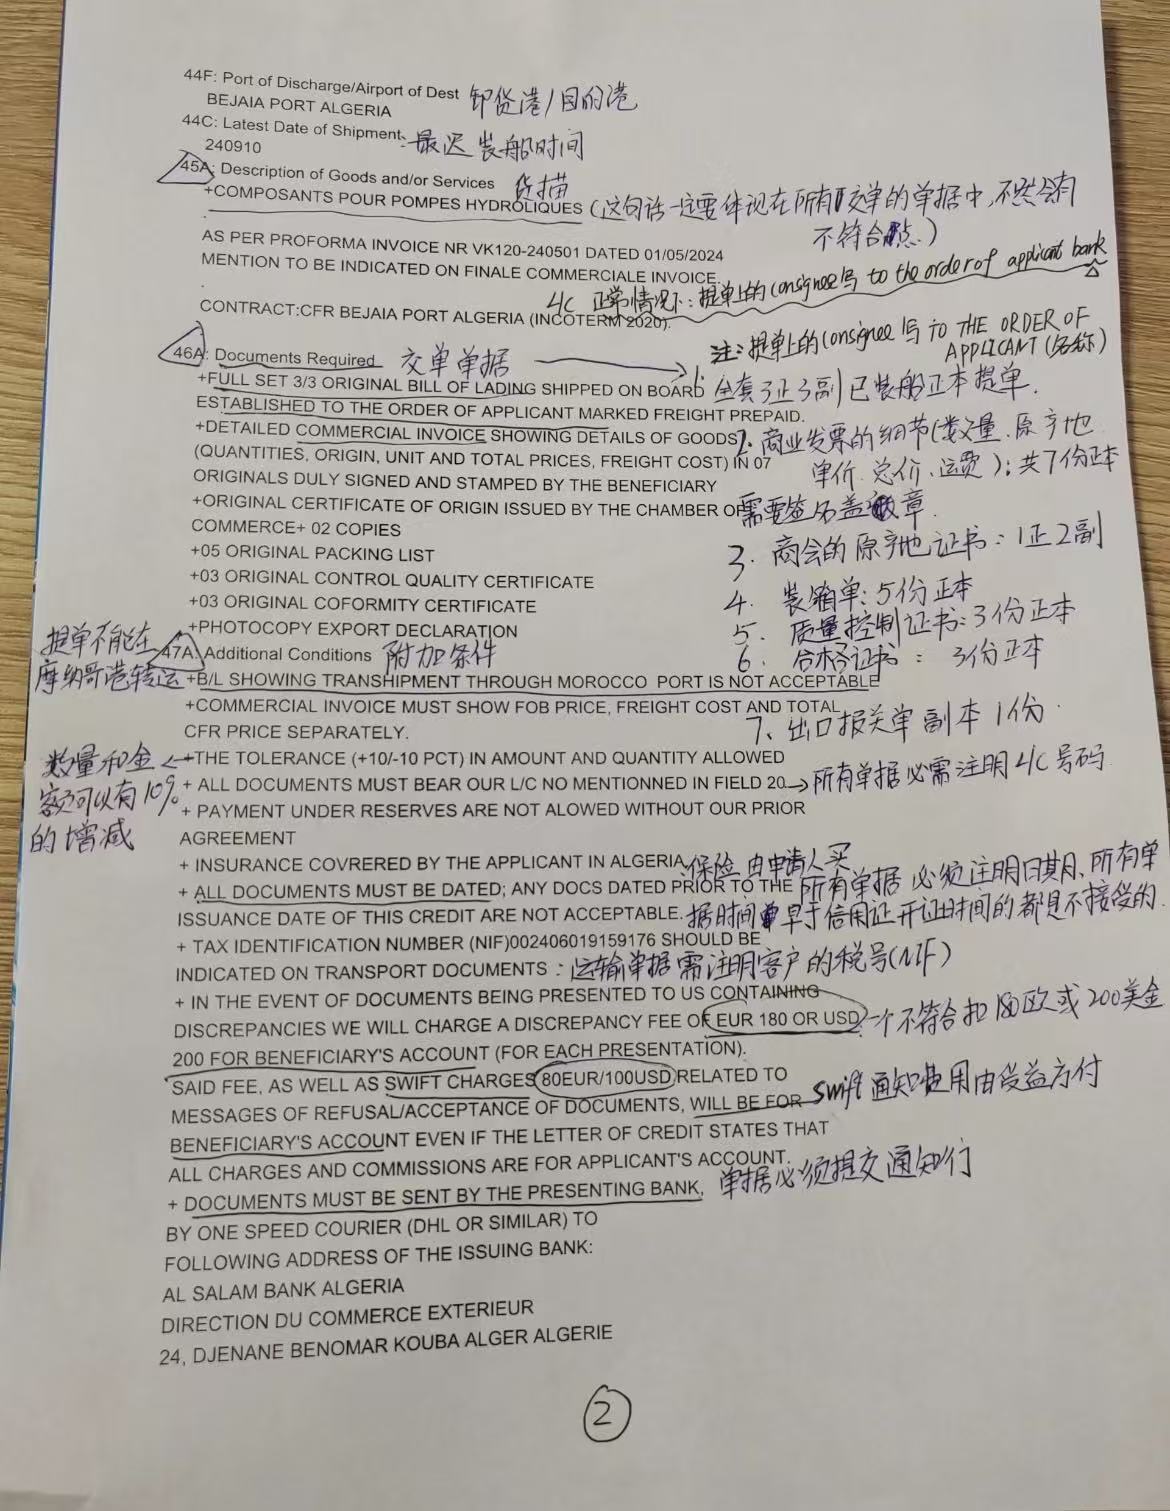 44F: Port of Discharge/Airport of Dest 卸货港/目的港
BEJAIA PORT ALGERIA
44C: Latest Date of Shipment: 最迟装船时间
240910
45A: Description of Goods and/or Services 货描
+COMPOSANTS POUR POMPES HYDROLIQUES (这句话一定要体现在所有交单的单据中,不然会有
不符合点.)
AS PER PROFORMA INVOICE NR VK120-240501 DATED 01/05/2024
MENTION TO BE INDICATED ON FINALE COMMERCIALE INVOICE.
L/C 正常情况下:提单上的consignee写 to the order of applicant bank
CONTRACT:CFR BEJAIA PORT ALGERIA (INCOTERM 2020).
注:提单上的consignee写 TO THE ORDER OF
APPLICANT(名称)
46A: Documents Required 交单单据
+FULL SET 3/3 ORIGINAL BILL OF LADING SHIPPED ON BOARD 1. 全套3正3副已装船正本提单.
ESTABLISHED TO THE ORDER OF APPLICANT MARKED FREIGHT PREPAID.
+DETAILED COMMERCIAL INVOICE SHOWING DETAILS OF GOODS 2. 商业发票的细节(数量.原产地
(QUANTITIES, ORIGIN, UNIT AND TOTAL PRICES, FREIGHT COST) IN 07 单价.总价.运费);共7份正本
ORIGINALS DULY SIGNED AND STAMPED BY THE BENEFICIARY
+ORIGINAL CERTIFICATE OF ORIGIN ISSUED BY THE CHAMBER OF 需要签名盖章.
COMMERCE+ 02 COPIES
3. 商会的原产地证书:1正2副
+05 ORIGINAL PACKING LIST
+03 ORIGINAL CONTROL QUALITY CERTIFICATE
4. 装箱单:5份正本
+03 ORIGINAL COFORMITY CERTIFICATE
5. 质量控制证书:3份正本
+PHOTOCOPY EXPORT DECLARATION
6. 合格证书: 3份正本
提单不能在
摩纳哥港转运
47A: Additional Conditions 附加条件
+B/L SHOWING TRANSHIPMENT THROUGH MOROCCO PORT IS NOT ACCEPTABLE
+COMMERCIAL INVOICE MUST SHOW FOB PRICE, FREIGHT COST AND TOTAL
7、出口报关单副本1份.
CFR PRICE SEPARATELY.
数量和金
额可以有10%
的增减
+THE TOLERANCE (+10/-10 PCT) IN AMOUNT AND QUANTITY ALLOWED
+ ALL DOCUMENTS MUST BEAR OUR L/C NO MENTIONNED IN FIELD 20 所有单据必需注明L/C号码.
+ PAYMENT UNDER RESERVES ARE NOT ALOWED WITHOUT OUR PRIOR
AGREEMENT
+ INSURANCE COVRERED BY THE APPLICANT IN ALGERIA. 保险由申请人买
+ ALL DOCUMENTS MUST BE DATED; ANY DOCS DATED PRIOR TO THE 所有单据必须注明日期,所有单
ISSUANCE DATE OF THIS CREDIT ARE NOT ACCEPTABLE. 据时间早于信用证开证时间的都是不接受的.
+ TAX IDENTIFICATION NUMBER (NIF)002406019159176 SHOULD BE
INDICATED ON TRANSPORT DOCUMENTS : 运输单据需注明客户的税号(NIF)
+ IN THE EVENT OF DOCUMENTS BEING PRESENTED TO US CONTAINING
DISCREPANCIES WE WILL CHARGE A DISCREPANCY FEE OF EUR 180 OR USD 一个不符合扣180欧或200美金
200 FOR BENEFICIARY'S ACCOUNT (FOR EACH PRESENTATION).
SAID FEE, AS WELL AS SWIFT CHARGES 80EUR/100USD RELATED TO
MESSAGES OF REFUSAL/ACCEPTANCE OF DOCUMENTS, WILL BE FOR swift通知费用由受益方付
BENEFICIARY'S ACCOUNT EVEN IF THE LETTER OF CREDIT STATES THAT
ALL CHARGES AND COMMISSIONS ARE FOR APPLICANT'S ACCOUNT.
+ DOCUMENTS MUST BE SENT BY THE PRESENTING BANK, 单据必须提交通知行
BY ONE SPEED COURIER (DHL OR SIMILAR) TO
FOLLOWING ADDRESS OF THE ISSUING BANK:
AL SALAM BANK ALGERIA
DIRECTION DU COMMERCE EXTERIEUR
24, DJENANE BENOMAR KOUBA ALGER ALGERIE
2